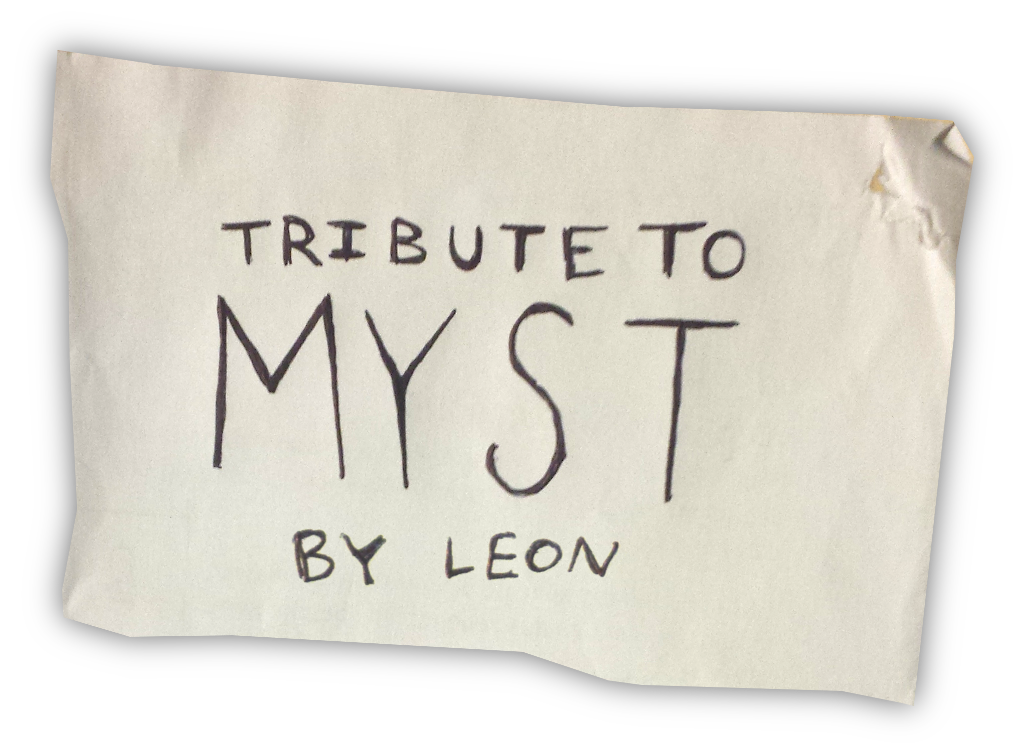 TRIBUTE TO
MYST
BY LEON